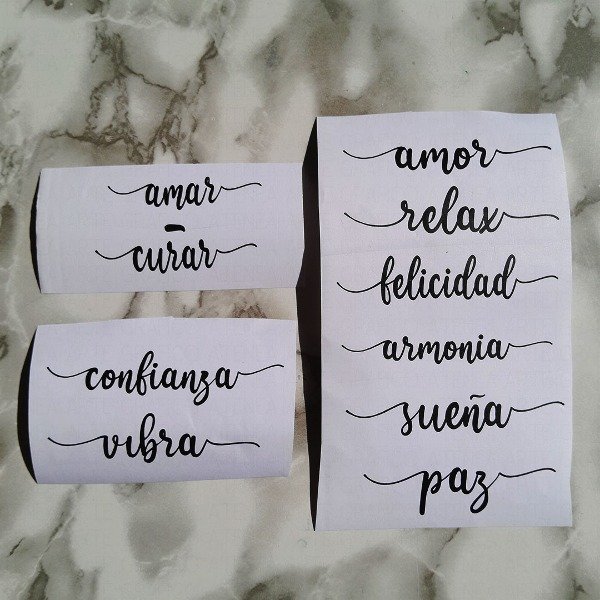 amar
-
curar
confianza
vibra
amor
relax
felicidad
armonia
sueña
paz